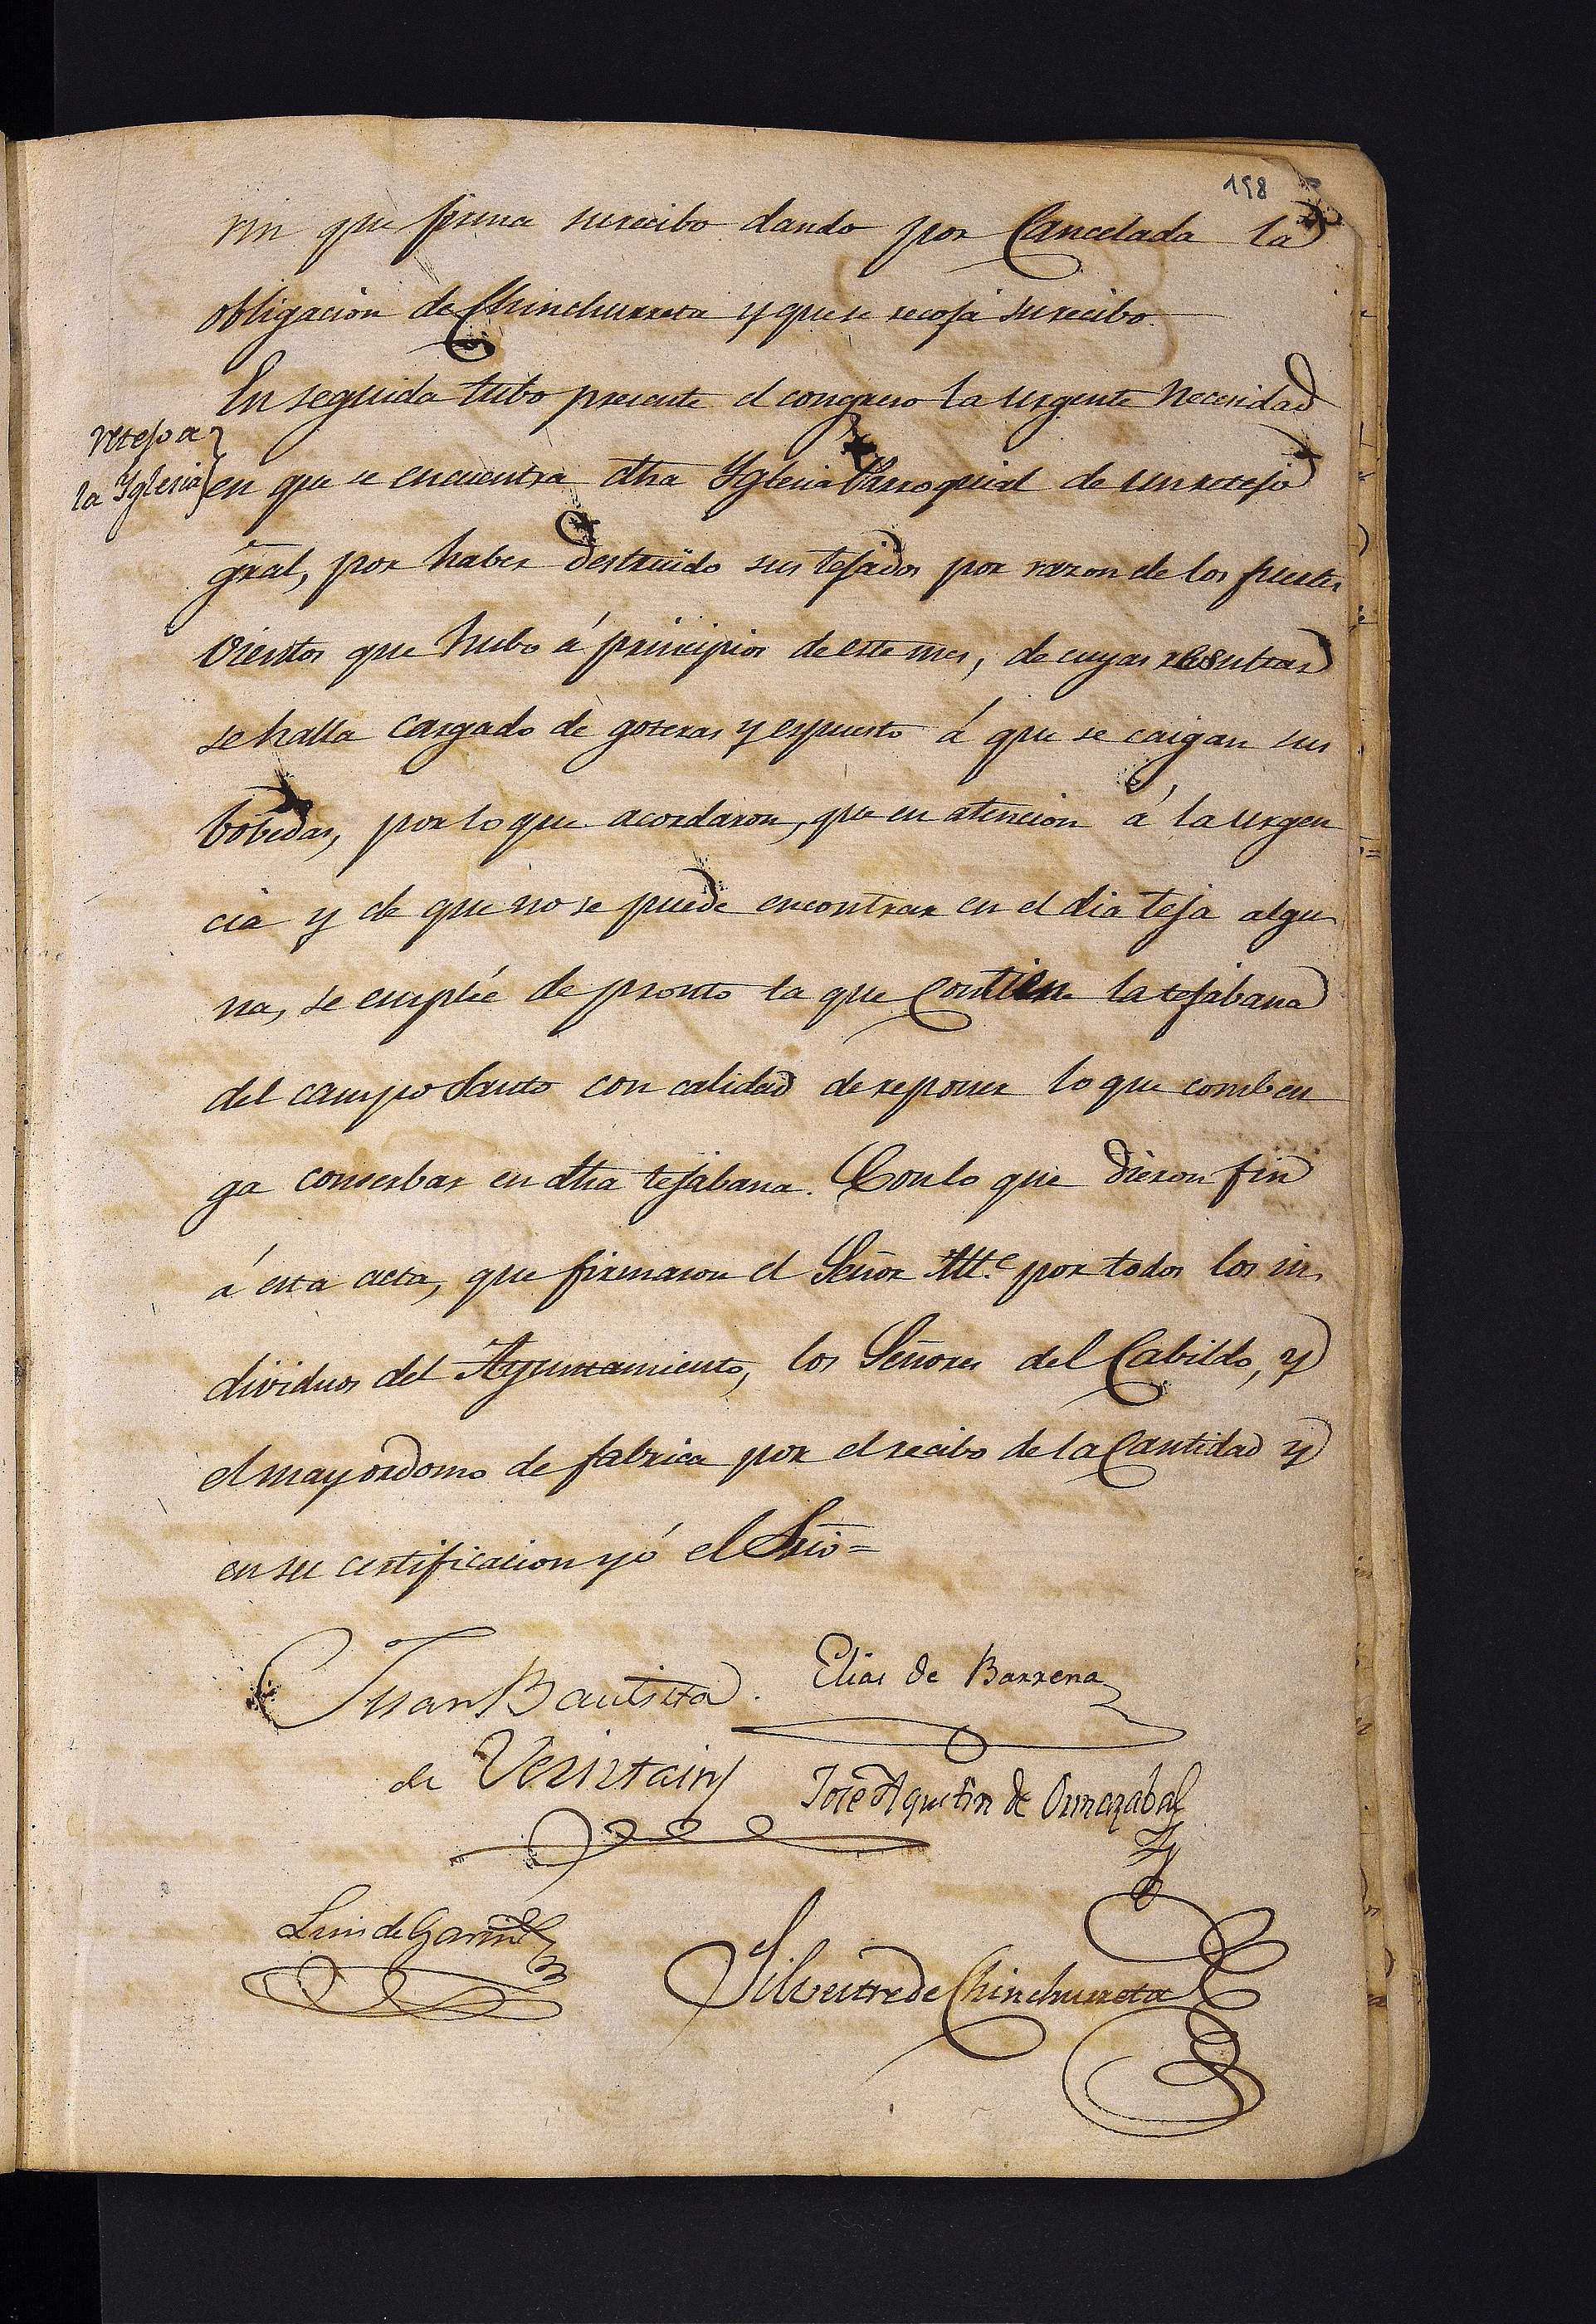 198
rin que firma su recibo dando por Cancelada la
obligacion de Chinchurreta y que se recoja su recibo.
En seguida tubo presente el congreso la urgente Necesidad
retejo a
la Yglesia
en que se encuentra dha Yglesia Parroquial de un retejo
gral, por haber destruido sus tejados por razon de los fuertes
vientos que hubo á principios de este mes, de cuyas resultas
se halla cargado de goteras y espuesto á que se caigan sus
bóbedas, por lo que acordaron, que en atencion á la urgen
cia y de que no se puede encontrar en el dia teja algu
na, se emplée de pronto la que Contiene la tejabana
del campo Santo con calidad de reponer lo que comben
ga conserbar en dha tejabana. Con lo que dieron fin
á esta acta, que firmaron el Señor Alt.e por todos los in
dividuos del Ayuntamiento, los Señores del Cabildo, y
el mayordomo de fabrica por el recibo de la Cantidad y
en su certificacion yó el Srio=
Juan Bautista
de
Elias de Barrena
José Agustin de Ormazabal
Luis de
Silvestre de Chinchurreta